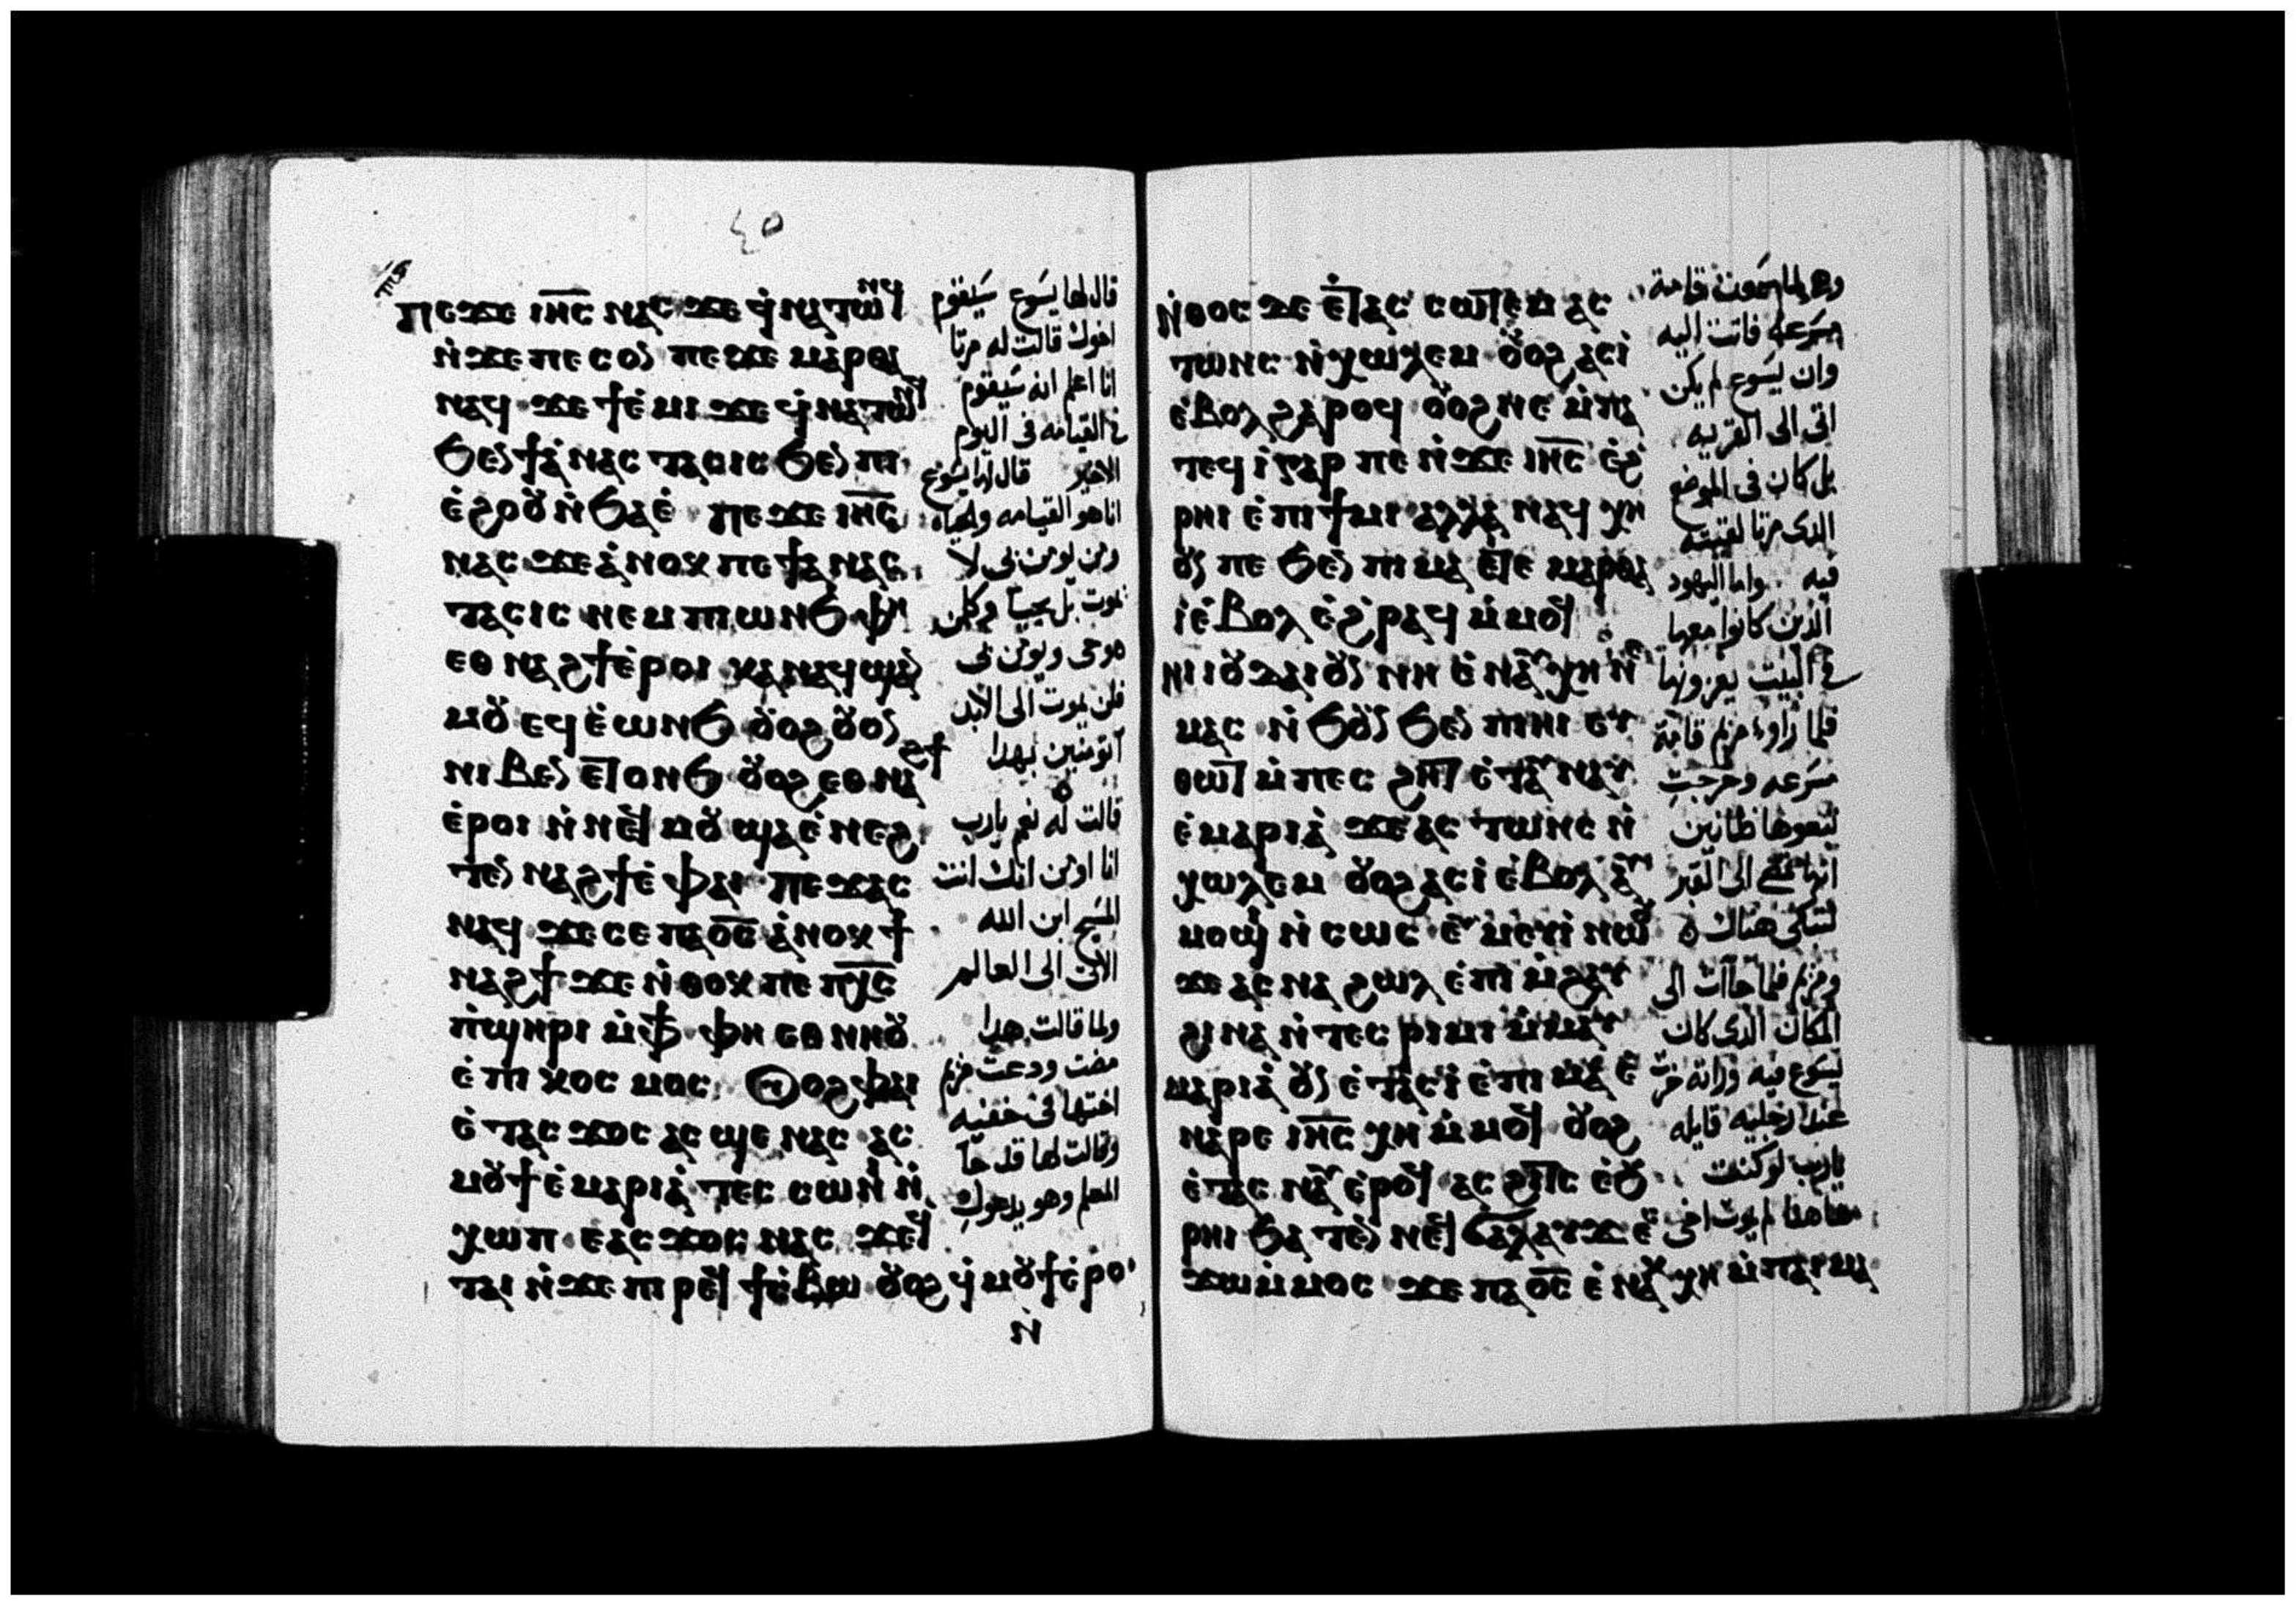 ٤٥
ⲡⲉϫⲉ ⲓⲏ̅ⲥ̅ ⲛⲁⲥ ϫⲉ ϥ̇ⲛⲁⲧⲱⲛϥ
ⲛ̇ϫⲉ ⲡⲉⲥⲟⲛ ⲡⲉϫⲉ ⲙⲁⲣⲑⲁ
ⲛⲁϥ ϫⲉ ϯⲉ̇ⲙⲓ ϫⲉ ϥ̇ⲛⲁⲧⲱⲛϥ
ϧⲉⲛ ϯⲁ̇ⲛⲁⲥⲧⲁⲥⲓⲥ ϧⲉⲛ ⲡⲓ
ⲉ̇ϩⲟⲟⲩ ⲛ̇ϧⲁⲉ̇ ⲡⲉϫⲉ ⲓⲏ̅ⲥ̅
ⲛⲁⲥ ϫⲉ ⲁ̇ⲛⲟⲕ ⲡⲉ ϯⲁ̇ⲛⲁⲥ
ⲧⲁⲥⲓⲥ ⲛⲉⲙ ⲡⲓⲱⲛϧ ⲫⲏ
ⲉⲑⲛⲁϩϯ ⲉ̇ⲣⲟⲓ ⲕⲁⲛ ⲁϥϣⲁⲛ
ⲙⲟⲩ ⲉϥⲉ̇ⲱⲛϧ ⲟⲩⲟϩ ⲟⲩⲟⲛ
ⲛⲓⲃⲉⲛ ⲉⲧⲟⲛϧ ⲟⲩⲟϩ ⲉⲑⲛⲁϩϯ
ⲉ̇ⲣⲟⲓ ⲛ̇ⲛⲉϥⲙⲟⲩ ϣⲁ ⲉ̇ⲛⲉϩ
ⲧⲉⲛⲁϩϯ ⲉ̇ⲫⲁⲓ ⲡⲉϫⲁⲥ
ⲛⲁϥ ϫⲉ ⲥⲉ ⲡⲁⲟ̅ⲥ̅ ⲁ̇ⲛⲟⲕ ϯ
ⲛⲁϩϯ ϫⲉ ⲛ̇ⲑⲟⲕ ⲡⲉ ⲡⲭ̅ⲥ̅
ⲡ̇ϣⲏⲣⲓ ⲙ̇ⲫϯ ⲫⲏ ⲉⲑⲛⲏⲟⲩ
ⲉ̇ⲡⲓⲕⲟⲥⲙⲟⲥ ⲟⲩⲟϩ ⲫⲁⲓ
ⲉ̇ⲧⲁⲥϫⲟⲥ ⲁⲥϣⲉ ⲛⲁⲥ ⲁⲥ
ⲙⲟⲩϯ ⲉ̇ⲙⲁⲣⲓⲁ̇ ⲧⲉⲥⲥⲱⲛⲓ ⲛ̇
ⲭⲱⲡ ⲉⲁⲥϫⲟⲥ ⲛⲁⲥ ϫⲉ
ⲧⲁⲓ ⲛ̇ϫⲉ ⲡⲓⲣⲉϥϯⲥ̇ⲃⲱ ⲟⲩⲟϩ ϥ̇ⲙⲟⲩϯ ⲉ̇ⲣⲟ
ⲛ̇
قال لها يسوع سيقوم
اخوك قالت له مرتا
انا اعلم انه سيقوم
في القيامه فى اليوم
الاخير قال لها يسوع
انا هو القيامه والحياه
ومن يومن بى لا
يموت بل يحيا وكل من
هو حى ويومن بى
فلن يموت الى الابد
اتومنين بهدا
قالت له نعم يارب
انا اومن انك انت
المسيح ابن الله
الاتى الى العالم
ولما قالت هدا
مضت ودعت مريم
اختها فى خفيه
وقالت لها قد جا
المعلم وهو يدعوك
ⲛ̇ⲑⲟⲥ ϫⲉ ⲉ̇ⲧⲁⲥ ⲥⲱⲧⲉⲙ ⲁⲥ
ⲧⲱⲛⲥ ⲛ̇ⲭⲱⲗⲉⲙ ⲟⲩⲟϩ ⲁⲥⲓ̇
ⲉ̇ⲃⲟⲗ ϩⲁⲣⲟϥ ⲟⲩⲟϩ ⲛⲉ ⲙ̇ⲡⲁ
ⲧⲉϥⲓ̇ ⲅⲁⲣ ⲡⲉ ⲛ̇ϫⲉ ⲓⲏ̅ⲥ̅ ⲉ̇ϩ
ⲣⲏⲓ ⲉ̇ⲡⲓϯⲙⲓ ⲁⲗⲗⲁ ⲛⲁϥⲭⲏ
ⲟⲩⲛ ⲡⲉ ϧⲉⲛ ⲡⲓⲙⲁ ⲉⲧⲉ ⲙⲁⲣⲑⲁ
ⲓ̇ ⲉ̇ⲃⲟⲗ ⲉ̇ϩⲣⲁϥ ⲙ̇ⲙⲟϥ
ⲛⲓⲓⲟⲩⲇⲁⲓ ⲟⲩⲛ ⲛⲏ ⲉ̇ⲛⲁⲩⲭⲏ ⲛⲉ
ⲙⲁⲥ ⲛ̇ϧⲟⲩⲛ ϧⲉⲛ ⲡⲓⲏⲓ ⲉⲩ
ⲑⲱⲧ ⲙ̇ⲡⲉⲥϩⲏⲧ ⲉ̇ⲧⲁⲩⲛⲁⲩ
ⲉ̇ⲙⲁⲣⲓⲁ̇ ϫⲉ ⲁⲥⲧⲱⲛⲥ ⲛ̇
ⲭⲱⲗⲉⲙ ⲟⲩⲟϩ ⲁⲥⲓ̇ ⲉ̇ⲃⲟⲗ ⲁⲩ
ⲙⲟϣⲓ ⲛ̇ⲥⲱⲥ ⲉⲩⲙⲉⲩⲓ̇ ⲛⲱⲟⲩ
ϫⲉ ⲁⲥⲛⲁϩⲱⲗ ⲉ̇ⲡⲓⲙ̇ϩⲁⲩ
ϩⲓⲛⲁ ⲛ̇ⲧⲉⲥⲣⲓⲙⲓ ⲙ̇ⲙⲁⲩ
ⲙⲁⲣⲓⲁ̇ ⲟⲩⲛ ⲉ̇ⲧⲁⲥⲓ̇ ⲉ̇ⲡⲓⲙⲁ ⲉ̇
ⲛⲁⲣⲉ ⲓⲏ̅ⲥ̅ ⲭⲏ ⲙ̇ⲙⲟϥ ⲟⲩⲟϩ
ⲉ̇ⲧⲁⲥⲛⲁⲩ ⲉ̇ⲣⲟϥ ⲁⲥϩⲓⲧⲥ ⲉ̇ϧ
ⲣⲏⲓ ϧⲁⲧⲉⲛ ⲛⲉϥϭⲁⲗⲁⲩϫ ⲉⲥ
ϫⲱ ⲙ̇ⲙⲟⲥ ϫⲉ ⲡⲁⲟ̅ⲥ̅ ⲉ̇ⲛⲁⲕⲭⲏ ⲙ̇ⲡⲁⲓⲙⲁ
سمعت قامت
مسرعه فاتت اليه
وان يسوع لم يكن
اتى الى القريه
بل كان فى الموضع
الدى مرتا لقيته
فيه واما اليهود
الدين كانوا معها
في البيت يعزونها
فلما راوا مريم قامة
مسرعه وخرجت
تبعوها ظانين
انها تمضي الى القبر
لتبكى هناك
ومريم فلما جاات الى
المكان الدى كان
يسوع فيه وراته خرت
عند رجليه قايله
يارب لو كنت
هاهنا لم يموت اخى